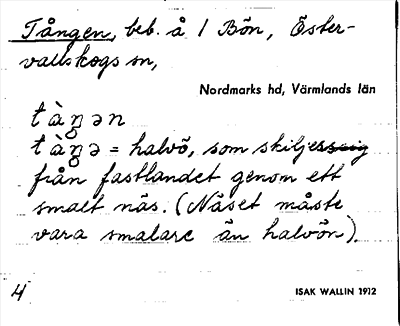 Tången, beb. å 1 Bön, Öster-
vallskogs sn,
Nordmarks hd, Värmlands län
tàŋ̊ən
tàŋ̊ə = halvö, som skiljes
från fastlandet genom ett
smalt näs. (Näset måste
vara smalare än halvön).
4
ISAK WALLIN 1912